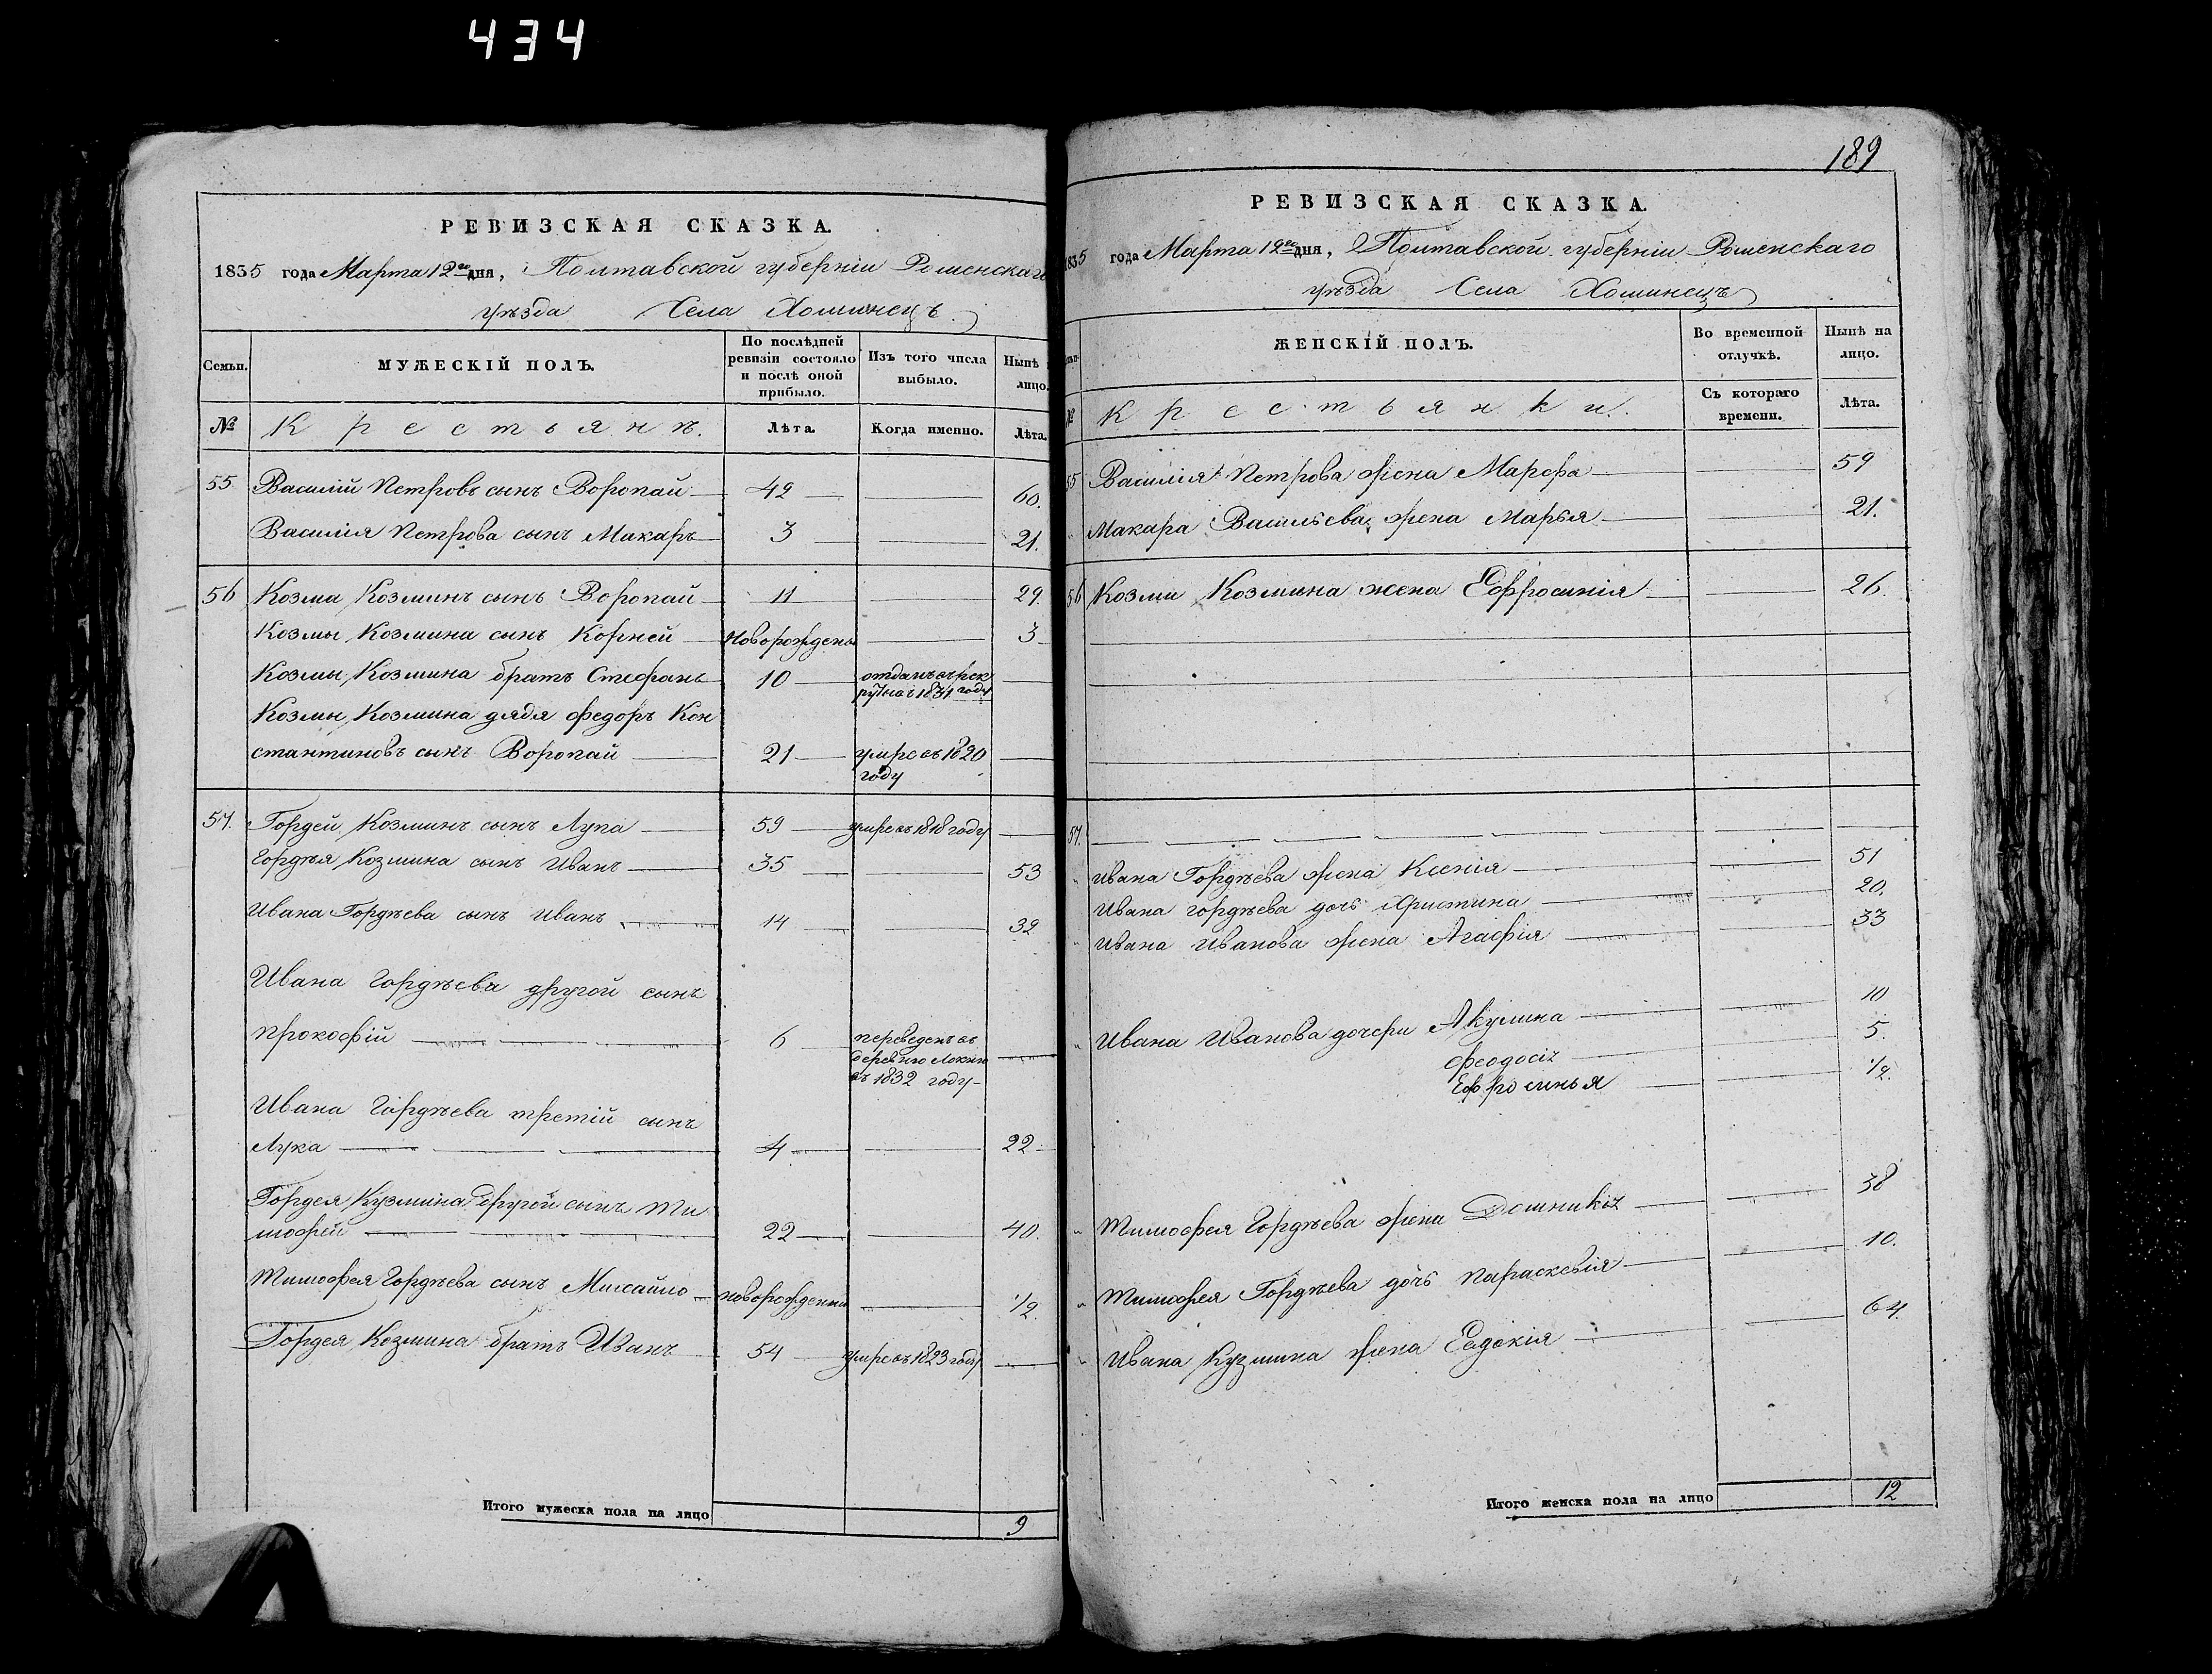 434
РЕВИЗСКАЯ СКАЗКА.
1835 года Марта 12го дня, Полтавской губерніи Роменскаго
уѣзда Села Хоминецъ.
Семьи. МУЖЕСКІЙ ПОЛЪ. По послѣдней ревизіи состояло и послѣ оной прибыло. Изъ того числа выбыло. Нынѣ лицо.
№ Крестьянъ. Лѣта. Когда именно. Лѣта.
55 Василій Петровъ сынъ Воропай 42 60.
Василія Петрова сынъ Макаръ 3 21.
56 Козма Козминъ сынъ Воропай 11 29.
Козмы Козмина сынъ Корней новорожденъ 3
Козмы Козмина братъ Стефанъ 10 отданъ въ рек
руты въ 1831 году
Козмы Козмина дядя Федоръ Кон
стантиновъ сынъ Воропай 21 умре въ 1820
году
57. Гордей Козминъ сынъ Лупа 59 умре въ 1818 году
Гордѣя Козмина сынъ Иванъ 35 53
Ивана Гордѣева сынъ Иванъ 14 32
Ивана Гордѣева другой сынъ
Прокофій 6 переведенъ въ
деревню
въ 1832 году
Ивана Гордѣева третій сынъ
Лука 4 22
Гордея Кузмина другой сынъ Ти
мофей 22 40.
Тимофея Гордѣева сынъ Михайло новорожденны 1/2.
Гордея Козмина братъ Иванъ 54 умре въ 1823 году
Итого мужеска пола на лицо 9
189
РЕВИЗСКАЯ СКАЗКА.
1835 года Марта 12го дня, Полтавской губерніи Роменскаго
уѣзда Села Хоминецъ
ЖЕНСКІЙ ПОЛЪ. Во временной отлучкѣ. Нынѣ на лицо.
№ Крестьянки. Съ котораго времени. Лѣта.
55 Василія Петрова жена Марфа 59
" Макара Васильева жена Марья 21.
56 Козми Козмина жена Ефросинія 26.
57.
" Ивана Гордѣева жена Ксенія 51
" Ивана Гордѣева дочь Христина 20.
" Ивана Иванова жена Агафія 33
" Ивана Иванова дочери Акулина 10
Феодосія 5.
Ефросинья 1/2.
" Тимофея Гордѣева жена Домникія 38
" Тимофея Гордѣева дочь Параскевія 10.
" Ивана Кузмина жена Евдокія 64.
Итого женска пола на лицо 12